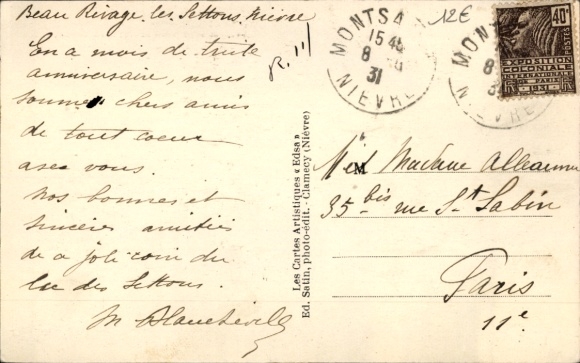 Beau Rivage. les Settons. Nièvre
En a mois de triste
anniversaire, nous
sommes chers amis
de tout coeur
avec vous.
Nos bonnes et
sincères amitiés
de a joli coin du
lac des Settons.
M Blancheville
R. 111
Les Cartes Artistiques « Edsa »
Ed. Satin, photo-édit. - Clamecy (Nièvre)
12€
MONTSA
15 45
8
31
NIÈVRE
MONT
8
3
NIÈVRE
40c
POSTES
EXPOSITION
COLONIALE
INTERNATIONALE
PARIS 1931
M et Madame Alleaume
35 bis rue St Sabin
Paris
11e.